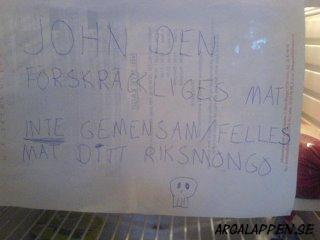 JOHN DEN
FÖRSKRÄCKLIGES MAT!
INTE GEMENSAM/FELLES
MAT DITT RIKSMONGO
ARGALAPPEN.SE